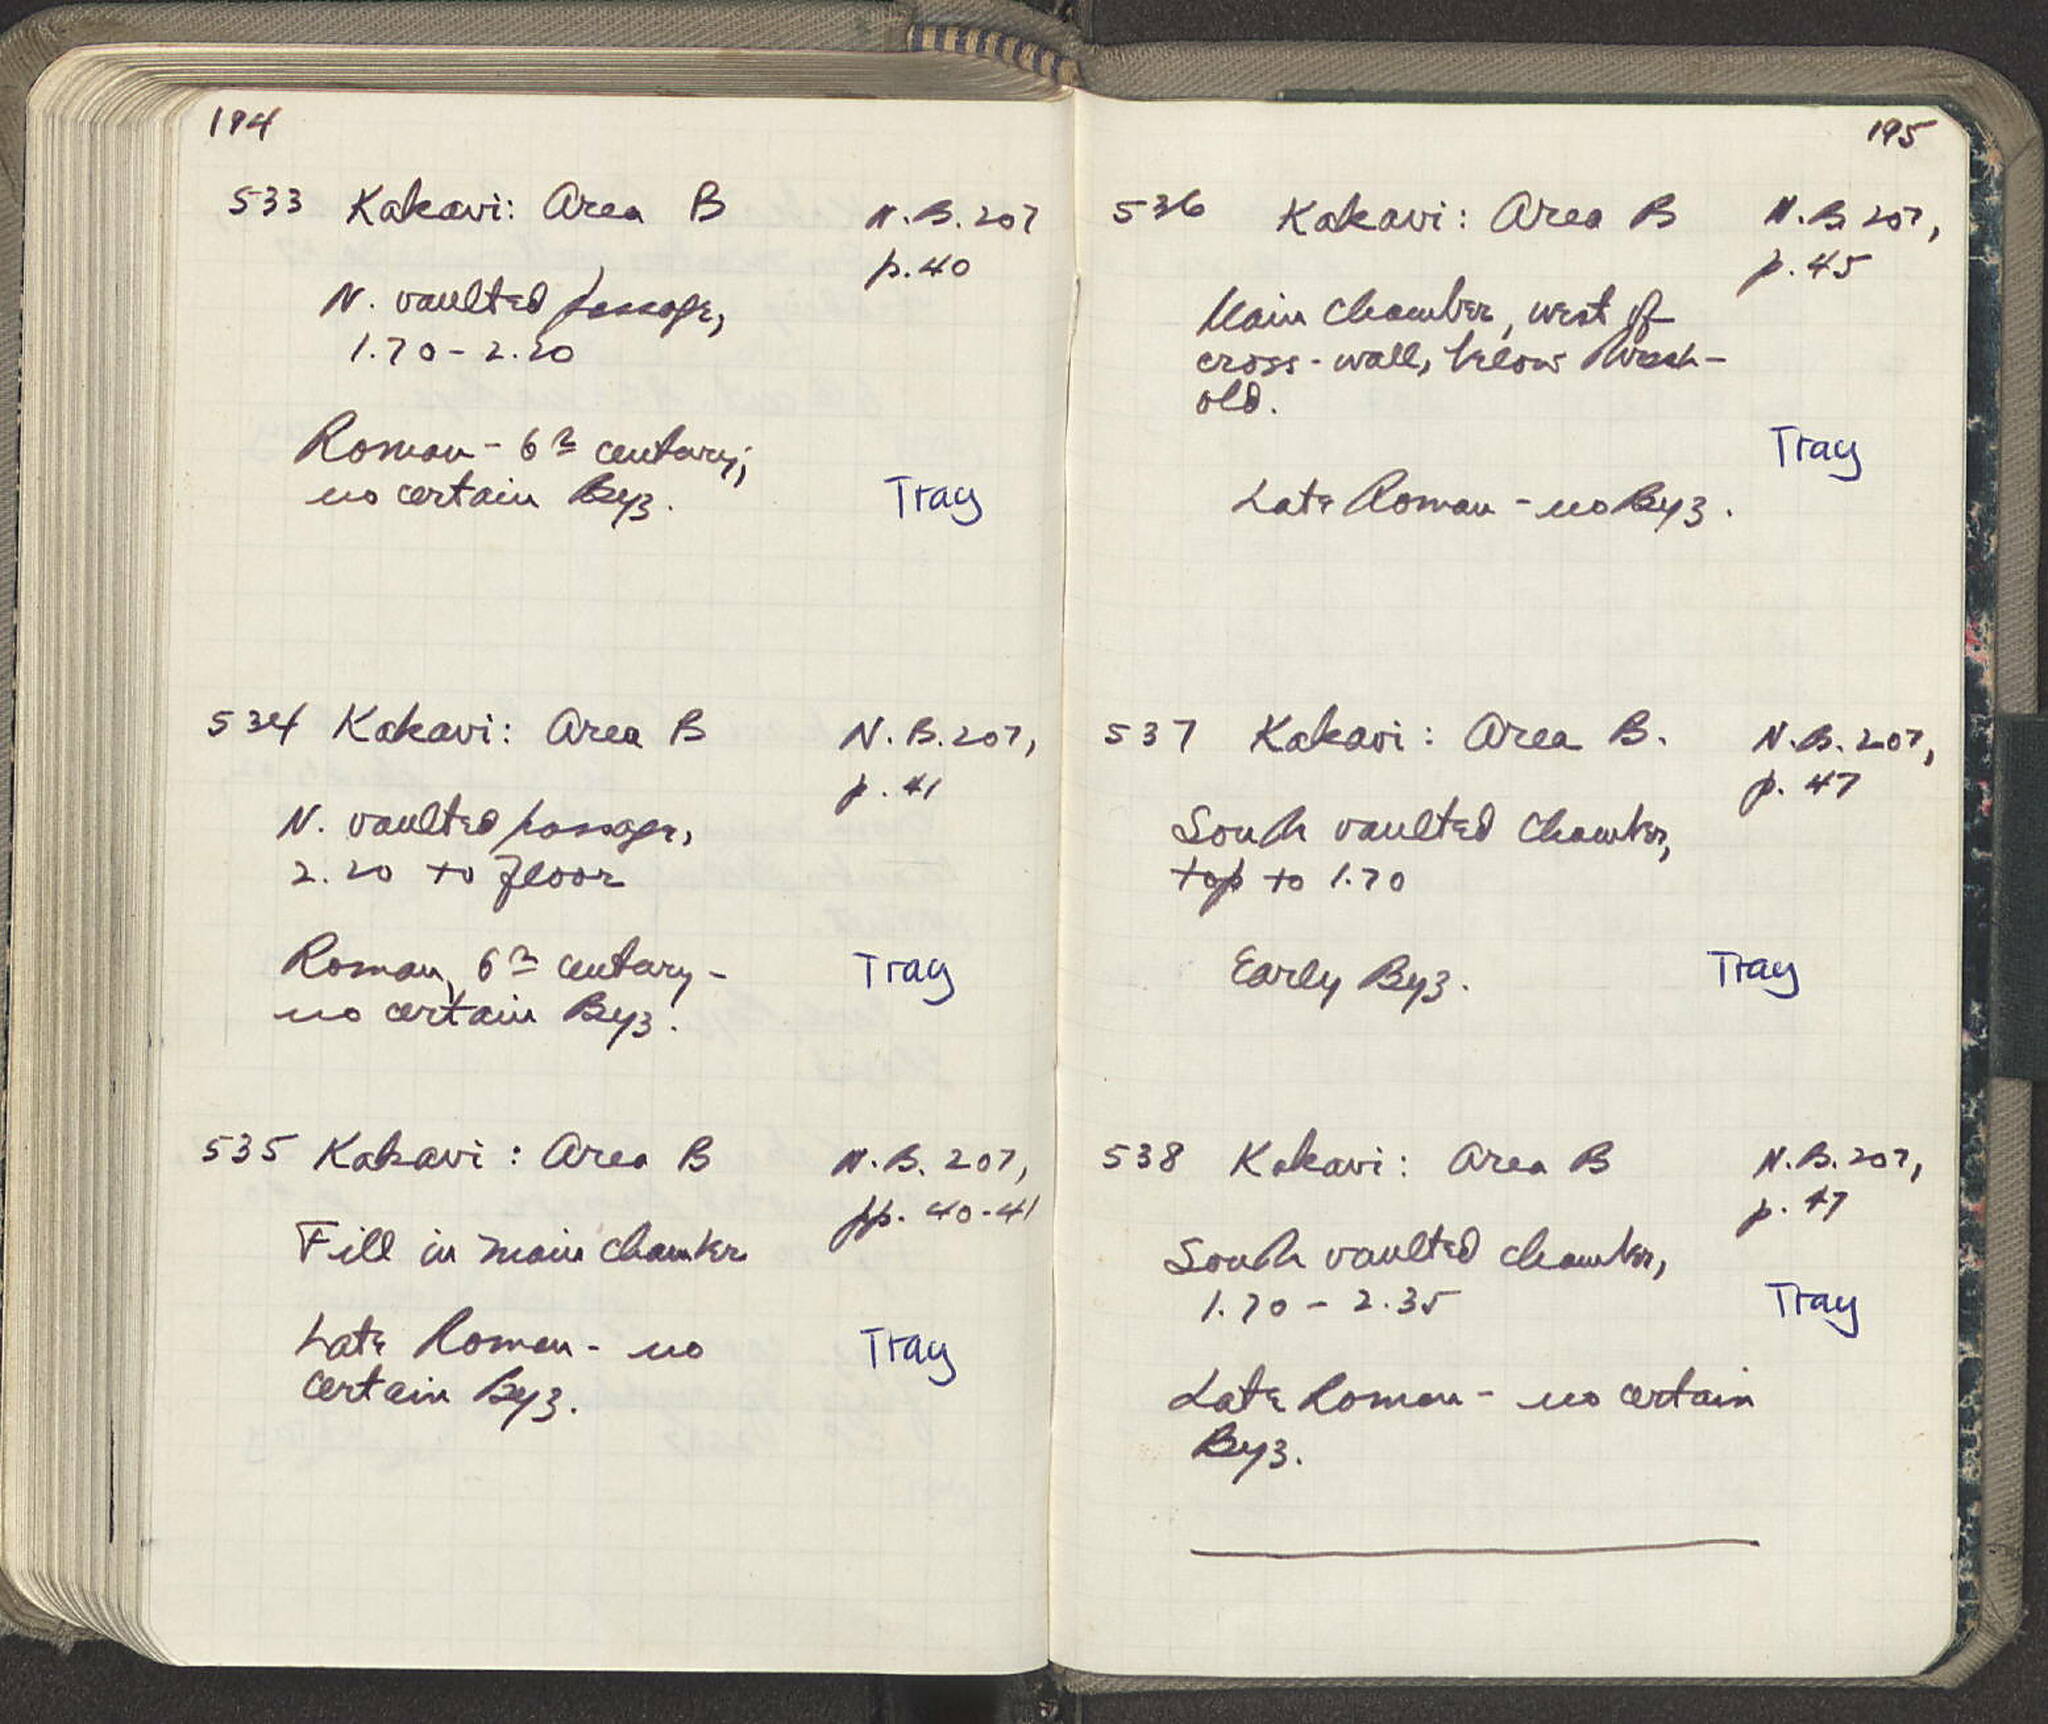 194
533 Kakavi: Area B N.B. 207
p. 40
N. vaulted passage,
1.70 - 2.20
Roman - 6th century;
no certain Byz.
Tray
534 Kakavi: Area B N.B. 207,
p. 41
N. vaulted passage,
2.20 to floor
Roman, 6th century -
no certain Byz.
Tray
535 Kakavi: Area B N.B. 207,
pp. 40-41
Fill in main chamber
Late Roman - no
certain Byz.
Tray
195
536 Kakavi: Area B N.B. 207,
p. 45
Main chamber, west of
cross-wall, below thresh-
old.
Tray
Late Roman - no Byz.
537 Kakavi: Area B. N.B. 207,
p. 47
South vaulted chamber,
top to 1.70
Early Byz.
Tray
538 Kakavi: Area B N.B. 207,
p. 47
South vaulted chamber,
1.70 - 2.35
Tray
Late Roman - no certain
Byz.